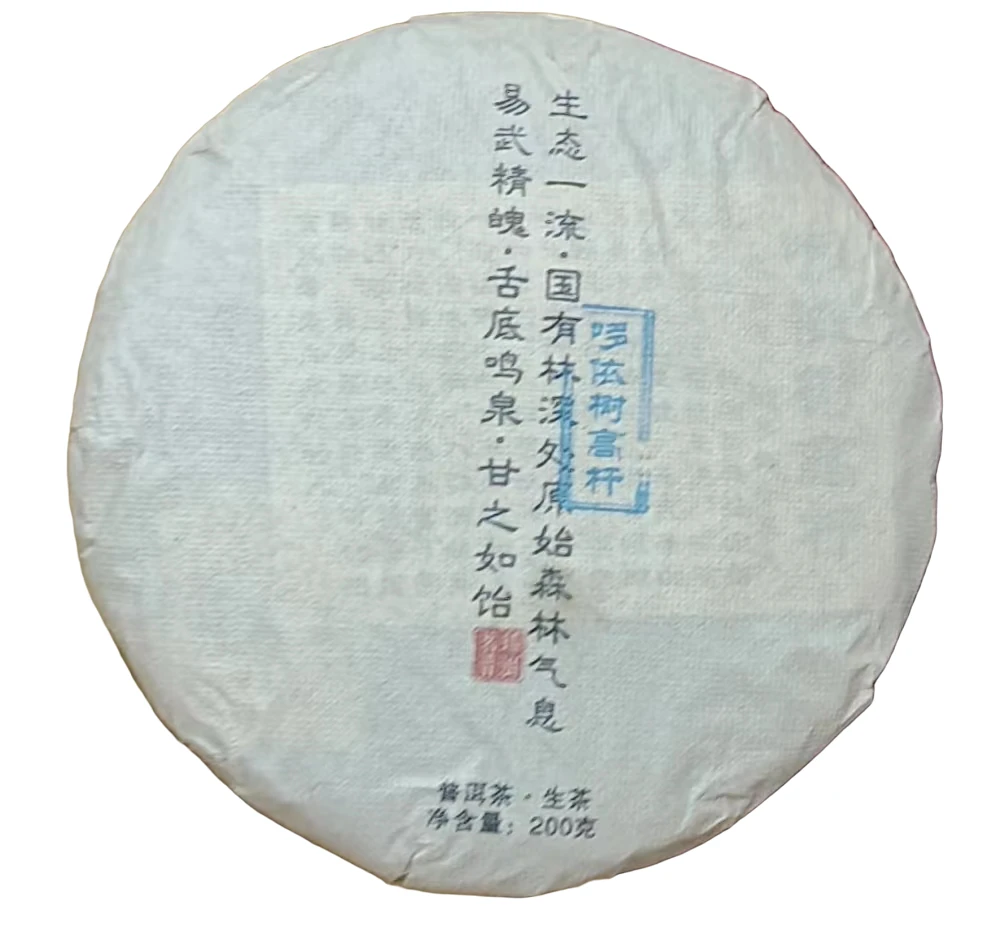 生态一流·国有林深处原始森林气息
易武精魄·舌底鸣泉·甘之如饴
哆依树高杆
普洱茶·生茶
净含量：200克